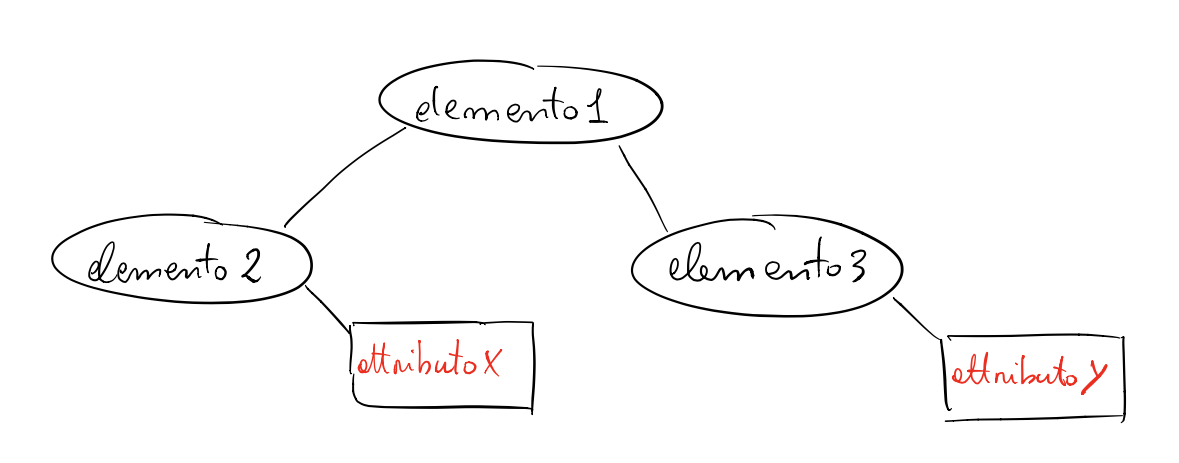 elemento 1
elemento 2
elemento 3
attributo X
attributo Y